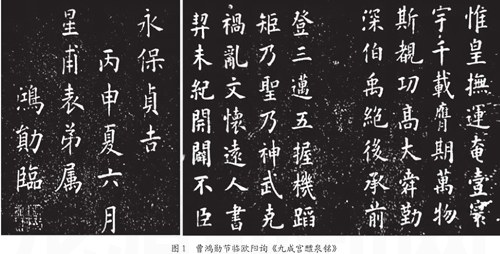 惟皇撫運奄壹寰
宇千載膺期萬物
斯覩功高大舜勤
深伯禹絕後承前
登三邁五握機蹈
矩乃聖乃神武克
禍亂文懷遠人書
契未紀開闢不臣
永保貞吉
丙申夏六月
星甫表弟属
鴻勛臨
图1 曹鸿勋节临欧阳询《九成宫醴泉铭》